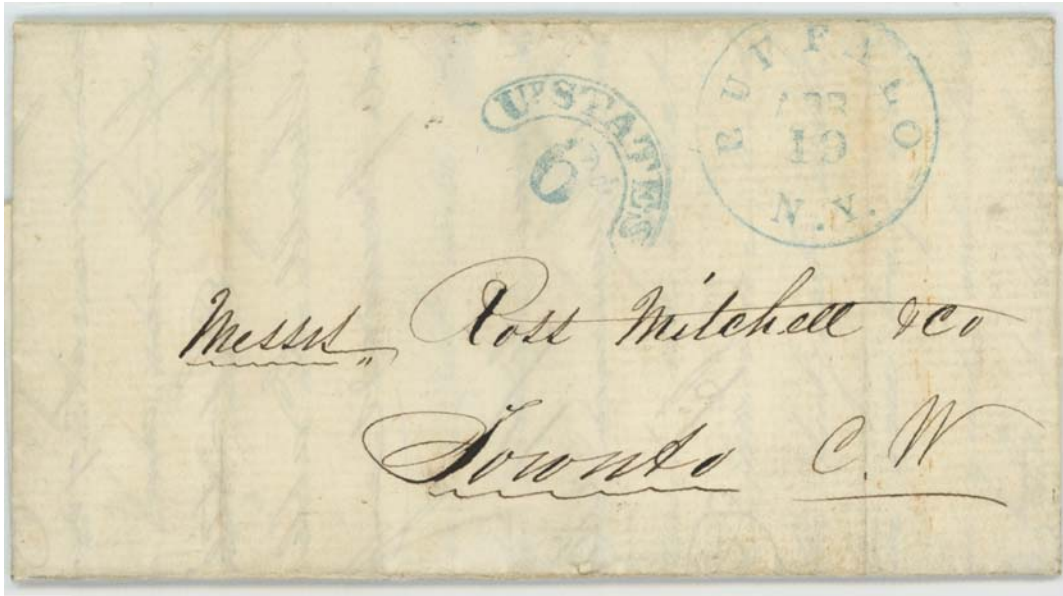 Uᴰ STATES
6ᴰ
BUFFALO
APR
19
N.Y.
Messrs Ross Mitchell & Co
Toronto C. W